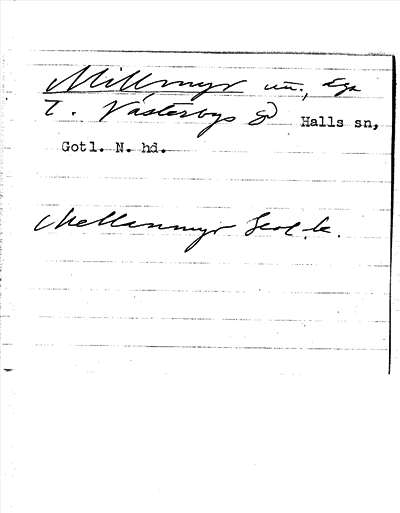 Millmyr un., äga
T. Västerbys gd Halls sn,
Gotl. N. hd.
Mellanmyr Geol. k.